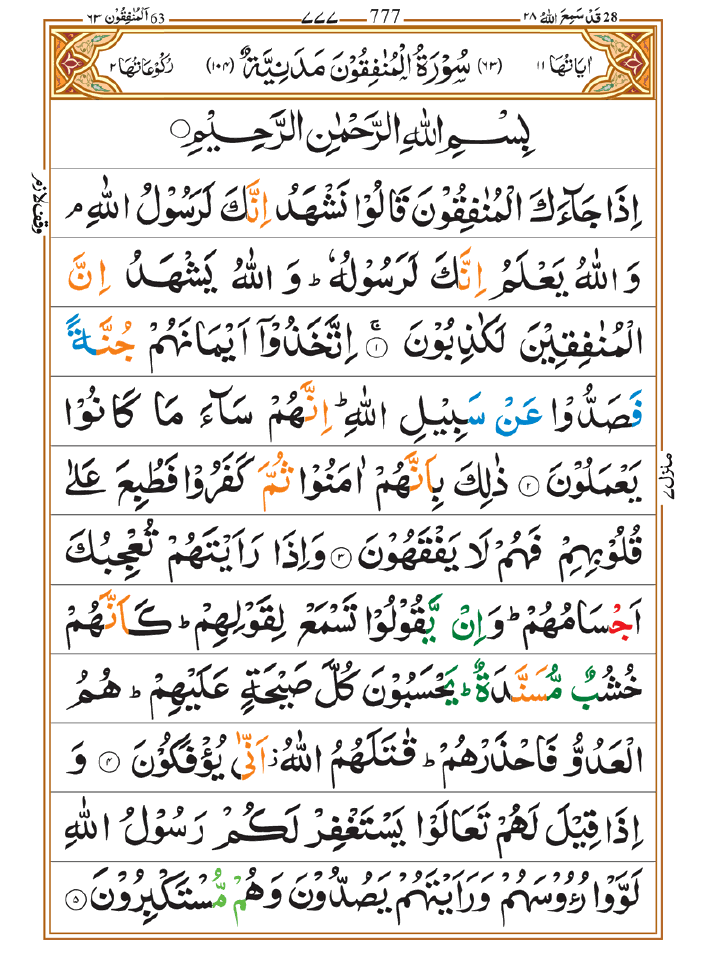 28 قَدْ سَمِعَ اللهُ ٢٨ — 777 — ٧٧٧ — 63 اَلْمُنٰفِقُوْن ٦٣
اٰيَاتُهَا ١١ (٦٣) سُوْرَةُ الْمُنٰفِقُوْنَ مَدَنِيَّةٌ (١٠٤) رُكُوْعَاتُهَا ٢
بِسْمِ اللهِ الرَّحْمٰنِ الرَّحِيْمِ ۝
اِذَا جَآءَكَ الْمُنٰفِقُوْنَ قَالُوْا نَشْهَدُ اِنَّكَ لَرَسُوْلُ اللهِ ۘ
وقف لازم
وَ اللهُ يَعْلَمُ اِنَّكَ لَرَسُوْلُهٗ ؕ وَ اللهُ يَشْهَدُ اِنَّ
الْمُنٰفِقِيْنَ لَكٰذِبُوْنَ ۚ ١ اِتَّخَذُوْۤا اَيْمَانَهُمْ جُنَّةً
فَصَدُّوْا عَنْ سَبِيْلِ اللهِ ؕ اِنَّهُمْ سَآءَ مَا كَانُوْا
يَعْمَلُوْنَ ٢ ذٰلِكَ بِاَنَّهُمْ اٰمَنُوْا ثُمَّ كَفَرُوْا فَطُبِعَ عَلٰى
منزل ٧
قُلُوْبِهِمْ فَهُمْ لَا يَفْقَهُوْنَ ٣ وَاِذَا رَاَيْتَهُمْ تُعْجِبُكَ
اَجْسَامُهُمْ ؕ وَاِنْ يَّقُوْلُوْا تَسْمَعْ لِقَوْلِهِمْ ؕ كَاَنَّهُمْ
خُشُبٌ مُّسَنَّدَةٌ ؕ يَحْسَبُوْنَ كُلَّ صَيْحَةٍ عَلَيْهِمْ ؕ هُمُ
الْعَدُوُّ فَاحْذَرْهُمْ ؕ قٰتَلَهُمُ اللهُ ؗ اَنّٰى يُؤْفَكُوْنَ ٤ وَ
اِذَا قِيْلَ لَهُمْ تَعَالَوْا يَسْتَغْفِرْ لَكُمْ رَسُوْلُ اللهِ
لَوَّوْا رُءُوْسَهُمْ وَرَاَيْتَهُمْ يَصُدُّوْنَ وَهُمْ مُّسْتَكْبِرُوْنَ ٥